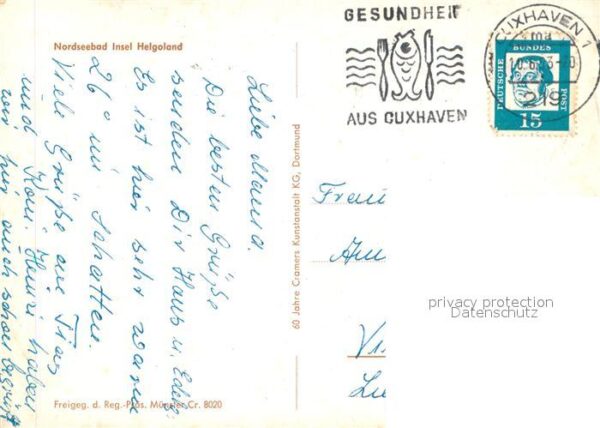 Nordseebad Insel Helgoland
Liebe Mama.
Die besten Grüße
senden Dir Hans u. Edith.
Es ist hier sehr warm
26° im Schatten.
Viele Grüße an Tims
und Kani. Henri haben
wir hier auch schon
60 Jahre Cramers Kunstanstalt KG, Dortmund
Freigeg. d. Reg.-Präs. Münster Cr. 8020
GESUNDHEIT
AUS CUXHAVEN
CUXHAVEN 1
219
DEUTSCHE
BUNDES
POST
15
Frau
privacy protection
Datenschutz